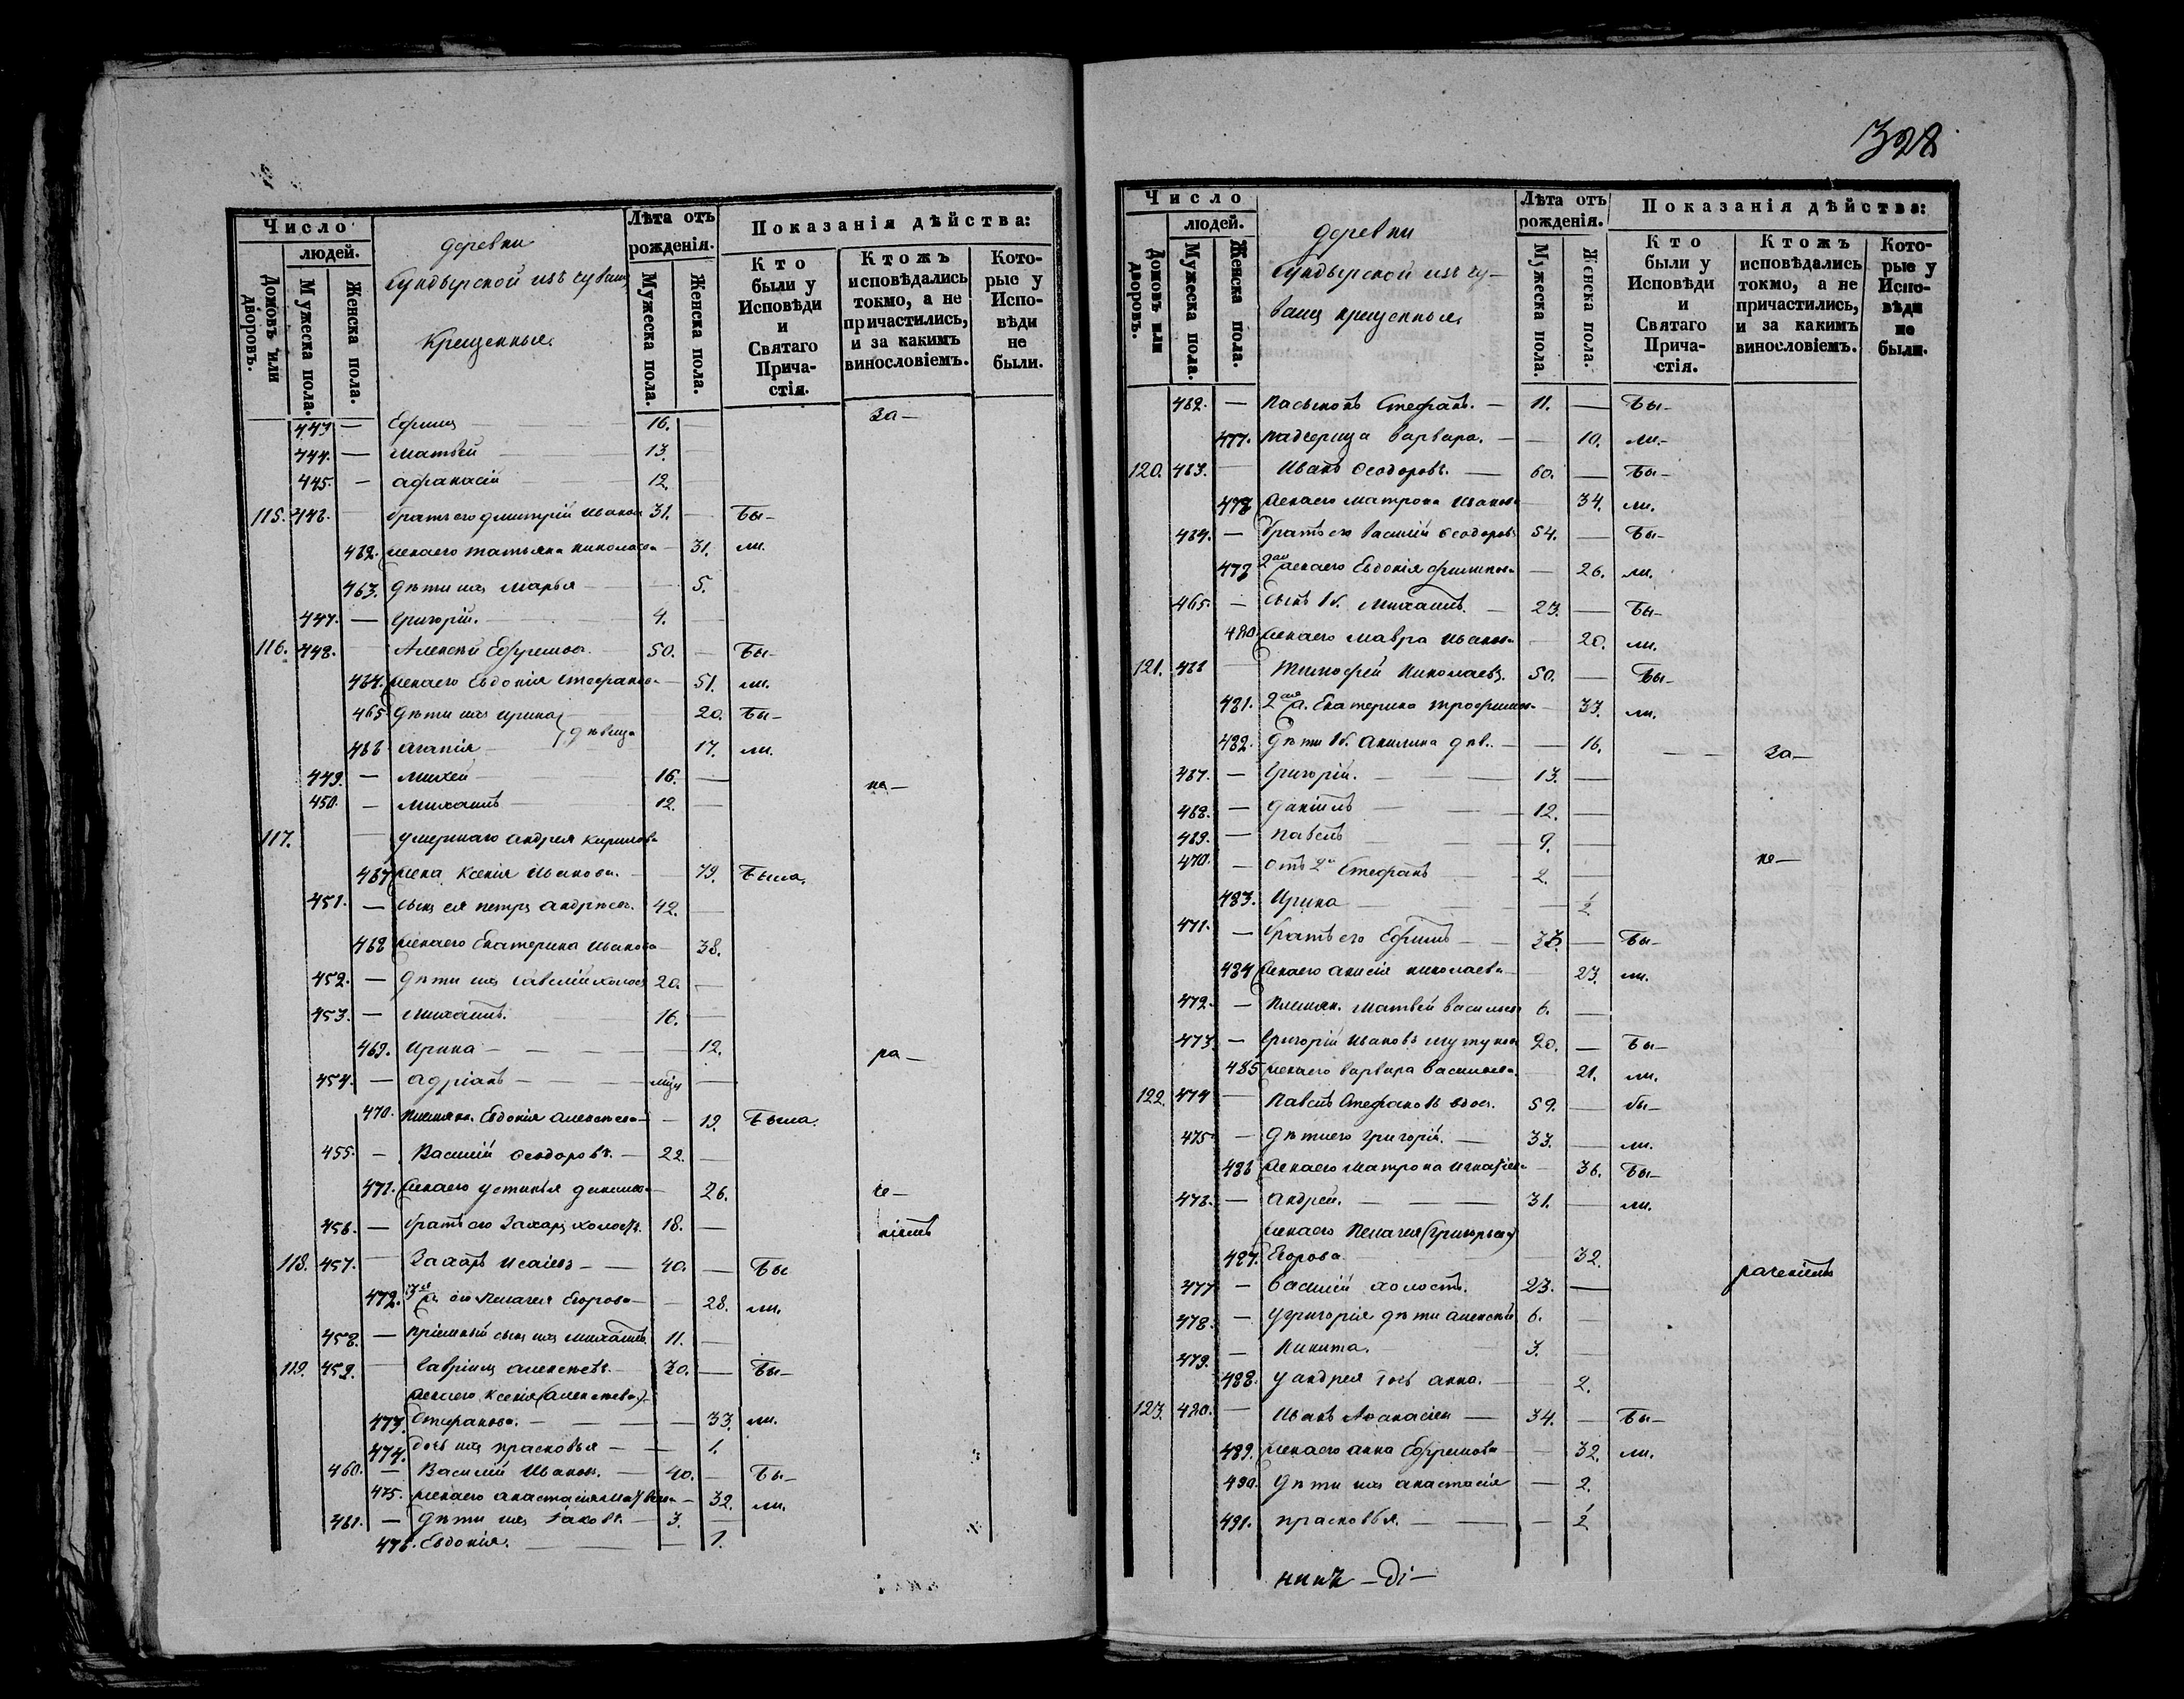 328
Число
людей.
Домовъ или дворовъ.
Мужеска пола.
Женска пола.
деревни
Сундырской изъ чувашъ
Крещенные
Лѣта отъ рожденія.
Мужеска пола.
Женска пола.
Показанія дѣйства:
Кто были у Исповѣди и Святаго Прича-стія.
Ктожъ исповѣдались токмо, а не причастились, и за какимъ винословіемъ.
Кото-рые у Испо-вѣди не были.
443 — Ефимъ 16. за—
444. — Матвѣй 13.
445. — Афанасій 12.
115. 446. братъ его Дмитрій Иванов 31. — бы-
462. жена его Татьяна Николаева 31. ли.
463. дѣти ихъ Марья 5.
447. — Григорій. 4.
116. 448. Алексѣй Ефремов 50. — бы-
464. жена его Евдокія Стефанова 51. ли.
465. дѣти ихъ Ирина 20. бы-
дѣвицы
466 Агапія 17. ли.
449. — Михей 16. — не—
450. — Михаилъ 12. —
117. умершаго Андрея Кирилова
467 жена Ксенія Иванова. 79. была.
451. — сынъ ея Петръ Андреевъ. 42. —
468 жена его Екатерина Иванова 38.
452. — дѣти ихъ Савелій холост 20. —
453. — Михаилъ. 16. —
469. Ирина — 12. ра—
454. — Адріанъ —
470. племян. Евдокія Алексѣева — 19. была.
455. — Василій Ѳеодоровъ. — 22. —
471. жена его Устинья Данилова 26. че—
456. — братъ его Захаръ холостъ. 18. — ніемъ
118. 457. Захаръ Исаіевъ — 40. — бы
472. 3я ж. его Пелагея Егорова — 28. ли.
458. — пріемный сынъ ихъ Михаилъ. 11. —
119. 459. Гавріилъ Алексѣевъ. — 30. — бы—
жена его Ксенія (Алексѣева)
473. Стефанова. — 33. ли.
474. дочь ихъ Прасковья — 1.
460. — Василій Иванов. — 40. — бы—
475. жена его Анастасія Матвѣева — 32. ли.
461. — дѣти ихъ Іаковъ. — 3. —
476. Евдокія. — 1.
Число
людей.
Домовъ или дворовъ.
Мужеска пола.
Женска пола.
деревни
Сундырской изъ чу-
вашъ крещенные.
Лѣта отъ рожденія.
Мужеска пола.
Женска пола.
Показанія дѣйства:
Кто были у Исповѣди и Святаго Прича-стія.
Ктожъ исповѣдались токмо, а не причастились, и за какимъ винословіемъ.
Кото-рые у Испо-вѣди не были.
462. — Пасынокъ Стефанъ. — 11. — бы-
477. падчерица Варвара. — 10. ли.-
120. 463. Иванъ Ѳеодоровъ. — 60. — бы-
478 жена его Матрона Иванова 34. ли.
464. — братъ его Василій Ѳеодоровъ 54. — бы-
479 2ая жена его Евдокія Филипова — 26. ли.
465. — сынъ 1б. Михаилъ. — 23. — бы-
480. жена его Мавра Иванова 20. ли.
121. 466 Тимофей Николаевъ. 50. — бы-
481. 2ая ж. Екатерина Трофимова 33. ли.
482. дѣти 1б. Акилина дѣв. — 16. за—
467. — Григорій. 13. —
468. — Даніилъ 12. —
469. — Павелъ 9. —
470. — отъ 2й Стефанъ 2. — не—
483. Ирина 1/2
471. — братъ его Ефимъ — — бы-
484 жена его Анисія Николаева 23. ли.
472. — племян. Матвѣй Васильев 6. —
473. — Григорій Иванов 20. — бы-
485 жена его Варвара Васильева. 21. ли.
122. 474 — Павелъ Стефановъ вдов. 59. — бы—
475 — дѣти его Григорій. — 33. — ли.
486 жена его Матрона Игнатіева 36. бы-
476. — Андрей. 31. — ли.
жена его Пелагея (Григорьева)
487. Егорова. 32.
477 — Василій холостъ. 23. — раченіемъ
478. — у Григорія дѣти Алексѣй 6.
479. — Никита. 3.
488. у Андрея дочь Анна. 2.
123. 480. — Иванъ Аѳанасіев — 34. — бы-
489. жена его Анна Ефремова 32. ли.
490. дѣти ихъ Анастасія — 2.
491. Прасковья. — 1/2
никъ — ді—